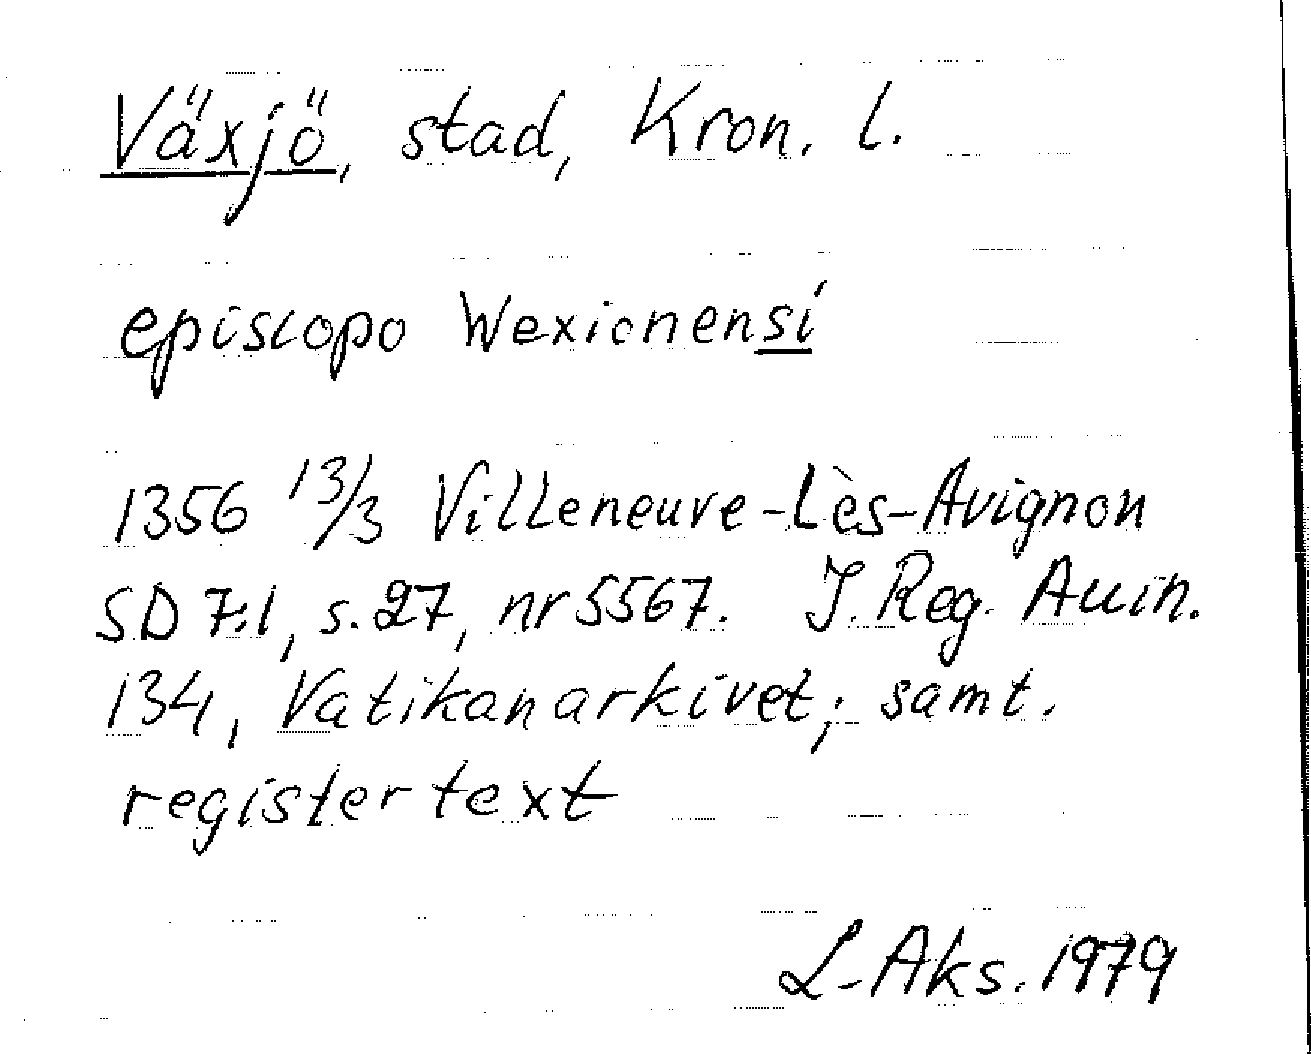 Växjö, stad, Kron. l.
episcopo Wexionensi
1356 13/3 Villeneuve-Lès-Avignon
SD 7:1, s. 27, nr 5567. I. Reg. Auin.
134, Vatikanarkivet; samt.
registertext
L-Aks. 1979